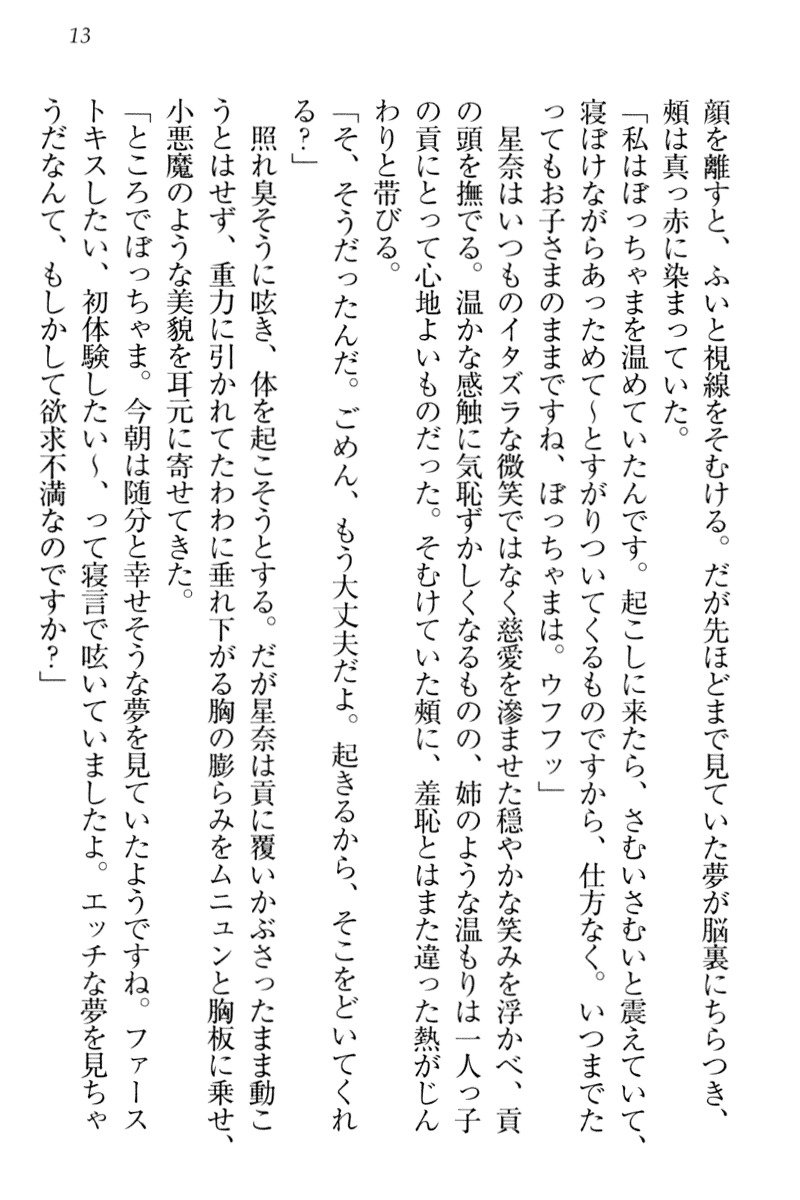 13
顔を離すと、ふいと視線をそむける。だが先ほどまで見ていた夢が脳裏にちらつき、
頰は真っ赤に染まっていた。
「私はぼっちゃまを温めていたんです。起こしに来たら、さむいさむいと震えていて、
寝ぼけながらあっためて〜とすがりついてくるものですから、仕方なく。いつまでた
ってもお子さまのままですね、ぼっちゃまは。ウフフッ」
星奈はいつものイタズラな微笑ではなく慈愛を滲ませた穏やかな笑みを浮かべ、貢
の頭を撫でる。温かな感触に気恥ずかしくなるものの、姉のような温もりは一人っ子
の貢にとって心地よいものだった。そむけていた頰に、羞恥とはまた違った熱がじん
わりと帯びる。
「そ、そうだったんだ。ごめん、もう大丈夫だよ。起きるから、そこをどいてくれ
る?」
照れ臭そうに呟き、体を起こそうとする。だが星奈は貢に覆いかぶさったまま動こ
うとはせず、重力に引かれてたわわに垂れ下がる胸の膨らみをムニュンと胸板に乗せ、
小悪魔のような美貌を耳元に寄せてきた。
「ところでぼっちゃま。今朝は随分と幸せそうな夢を見ていたようですね。ファース
トキスしたい、初体験したい〜、って寝言で呟いていましたよ。エッチな夢を見ちゃ
うだなんて、もしかして欲求不満なのですか?」